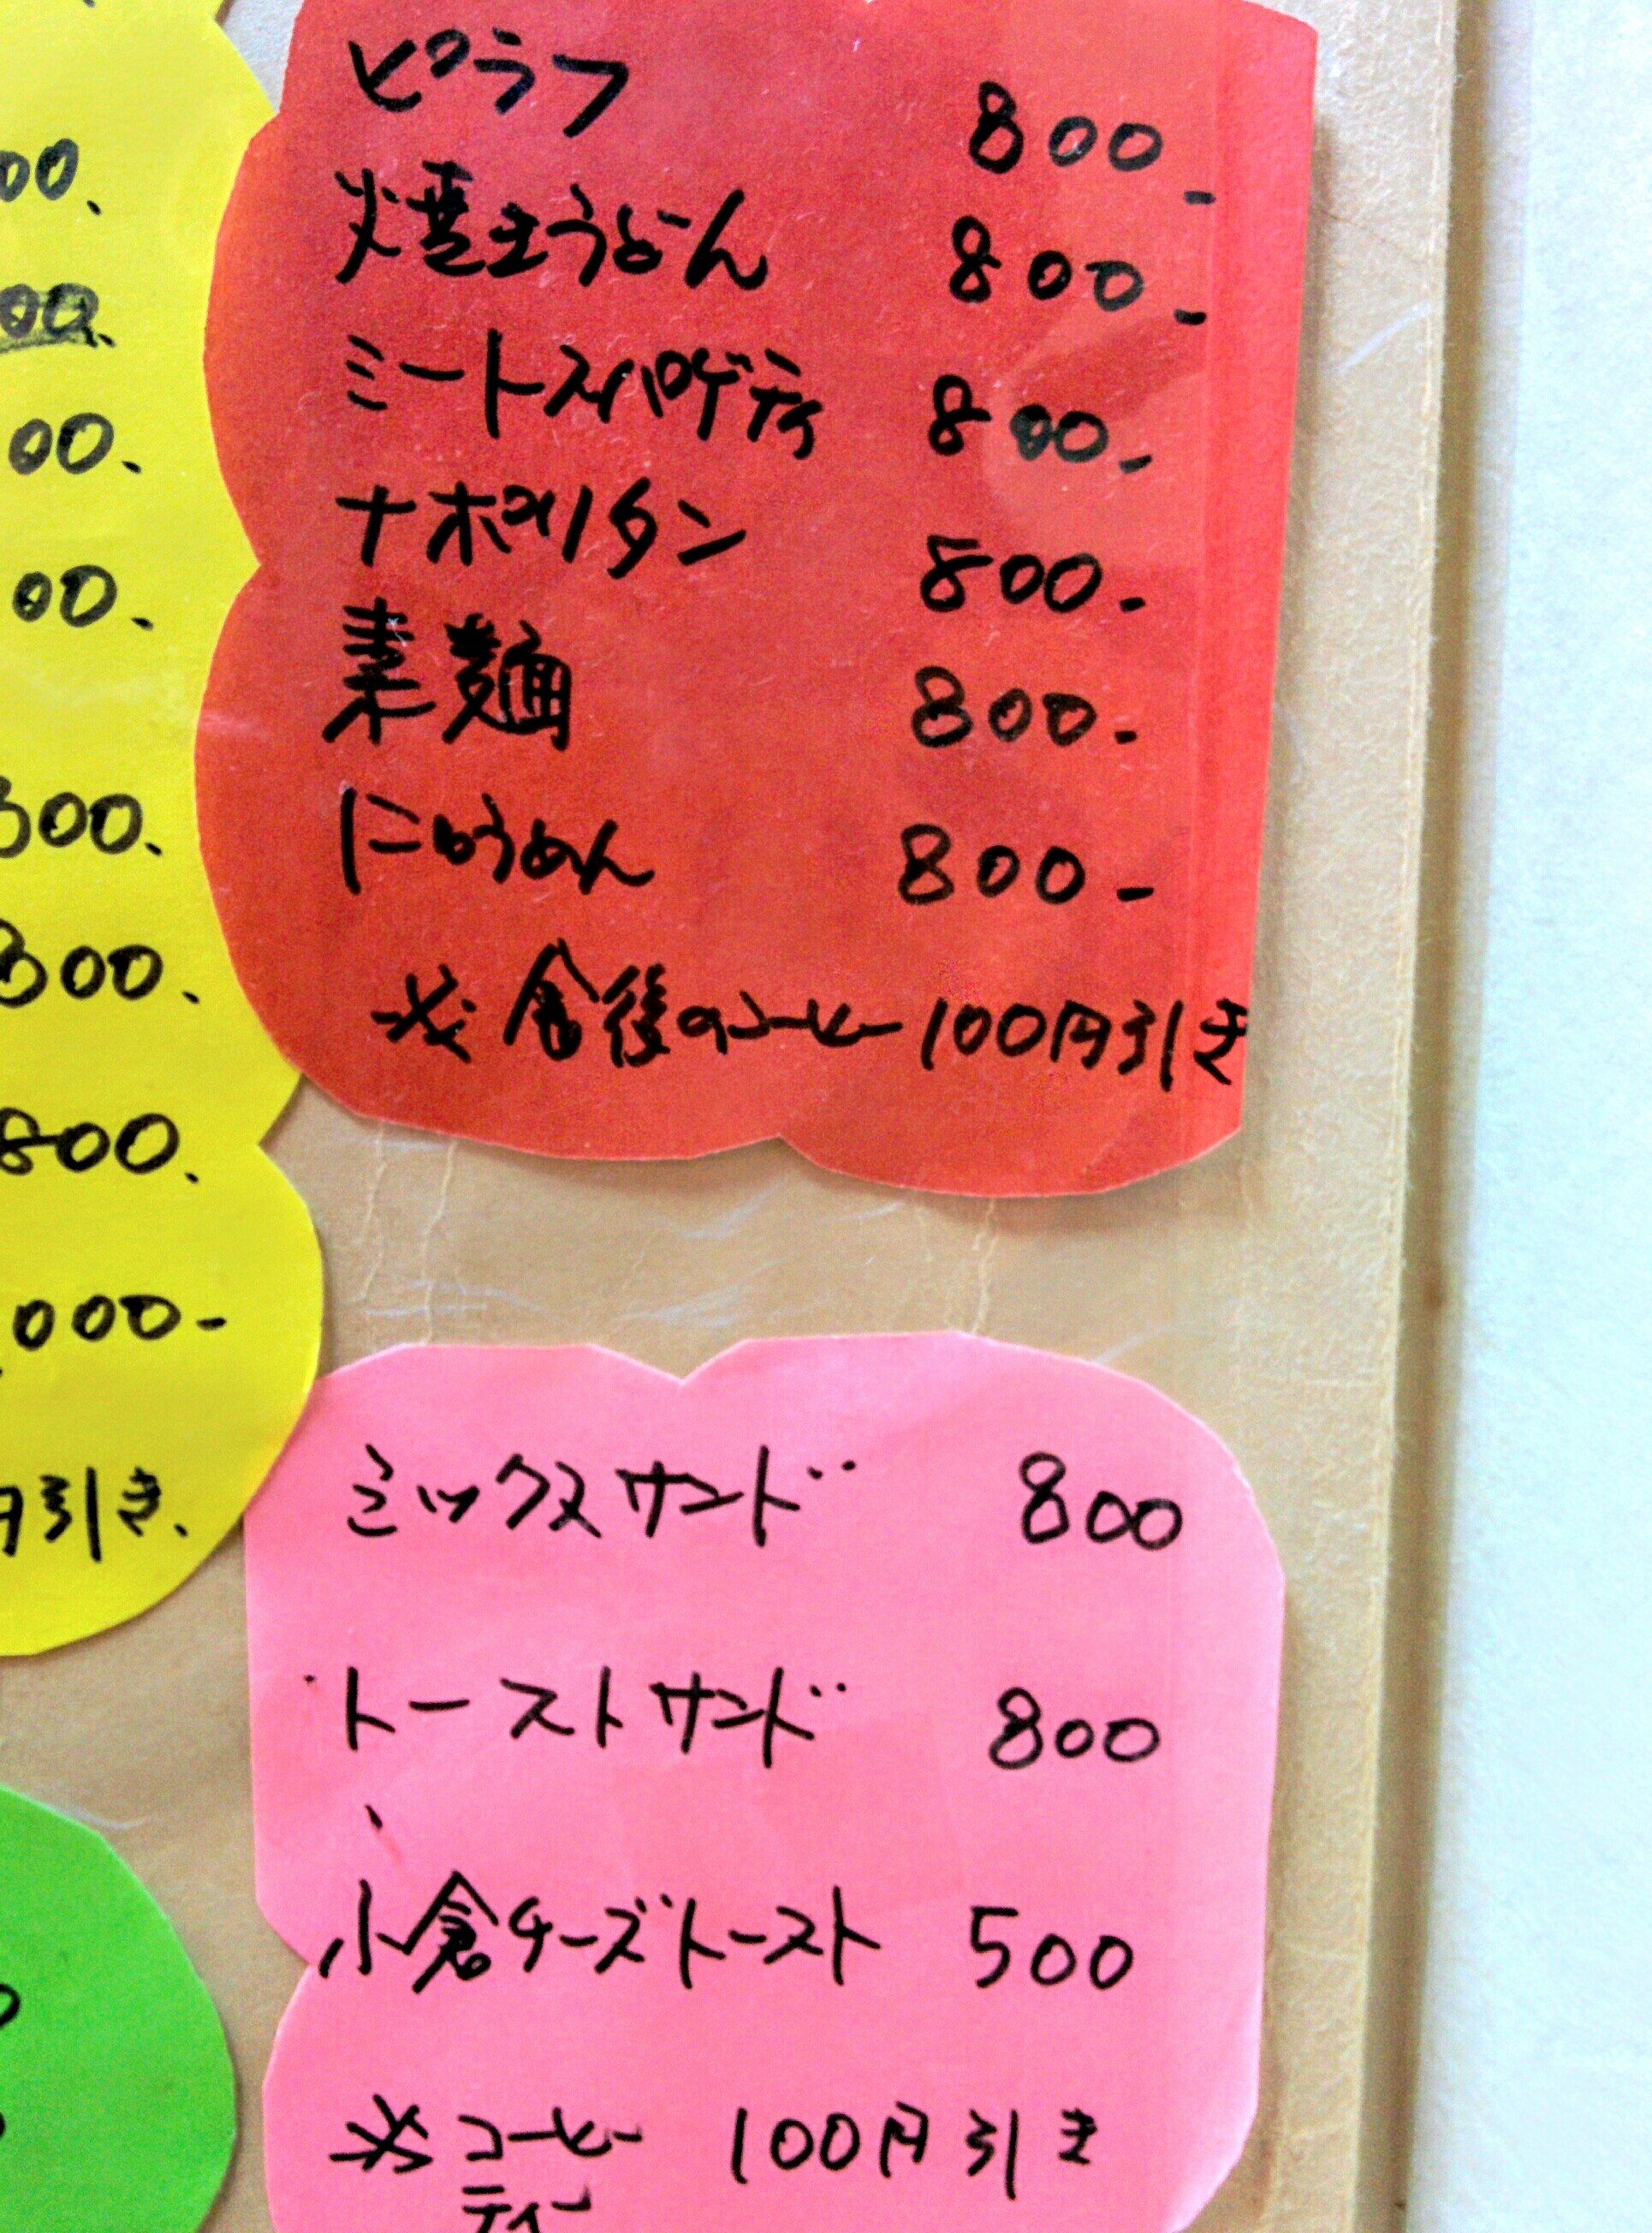 ピラフ 800.-
焼きうどん 800.-
ミートスパゲティ 800.-
ナポリタン 800.-
素麺 800.-
にゅうめん 800.-
※食後のコーヒー100円引き
ミックスサンド 800
トーストサンド 800
小倉チーズトースト 500
※コーヒー 100円引き
ティー
00.
00.
00.
00.
800.
800.
800.
,000-
円引き.